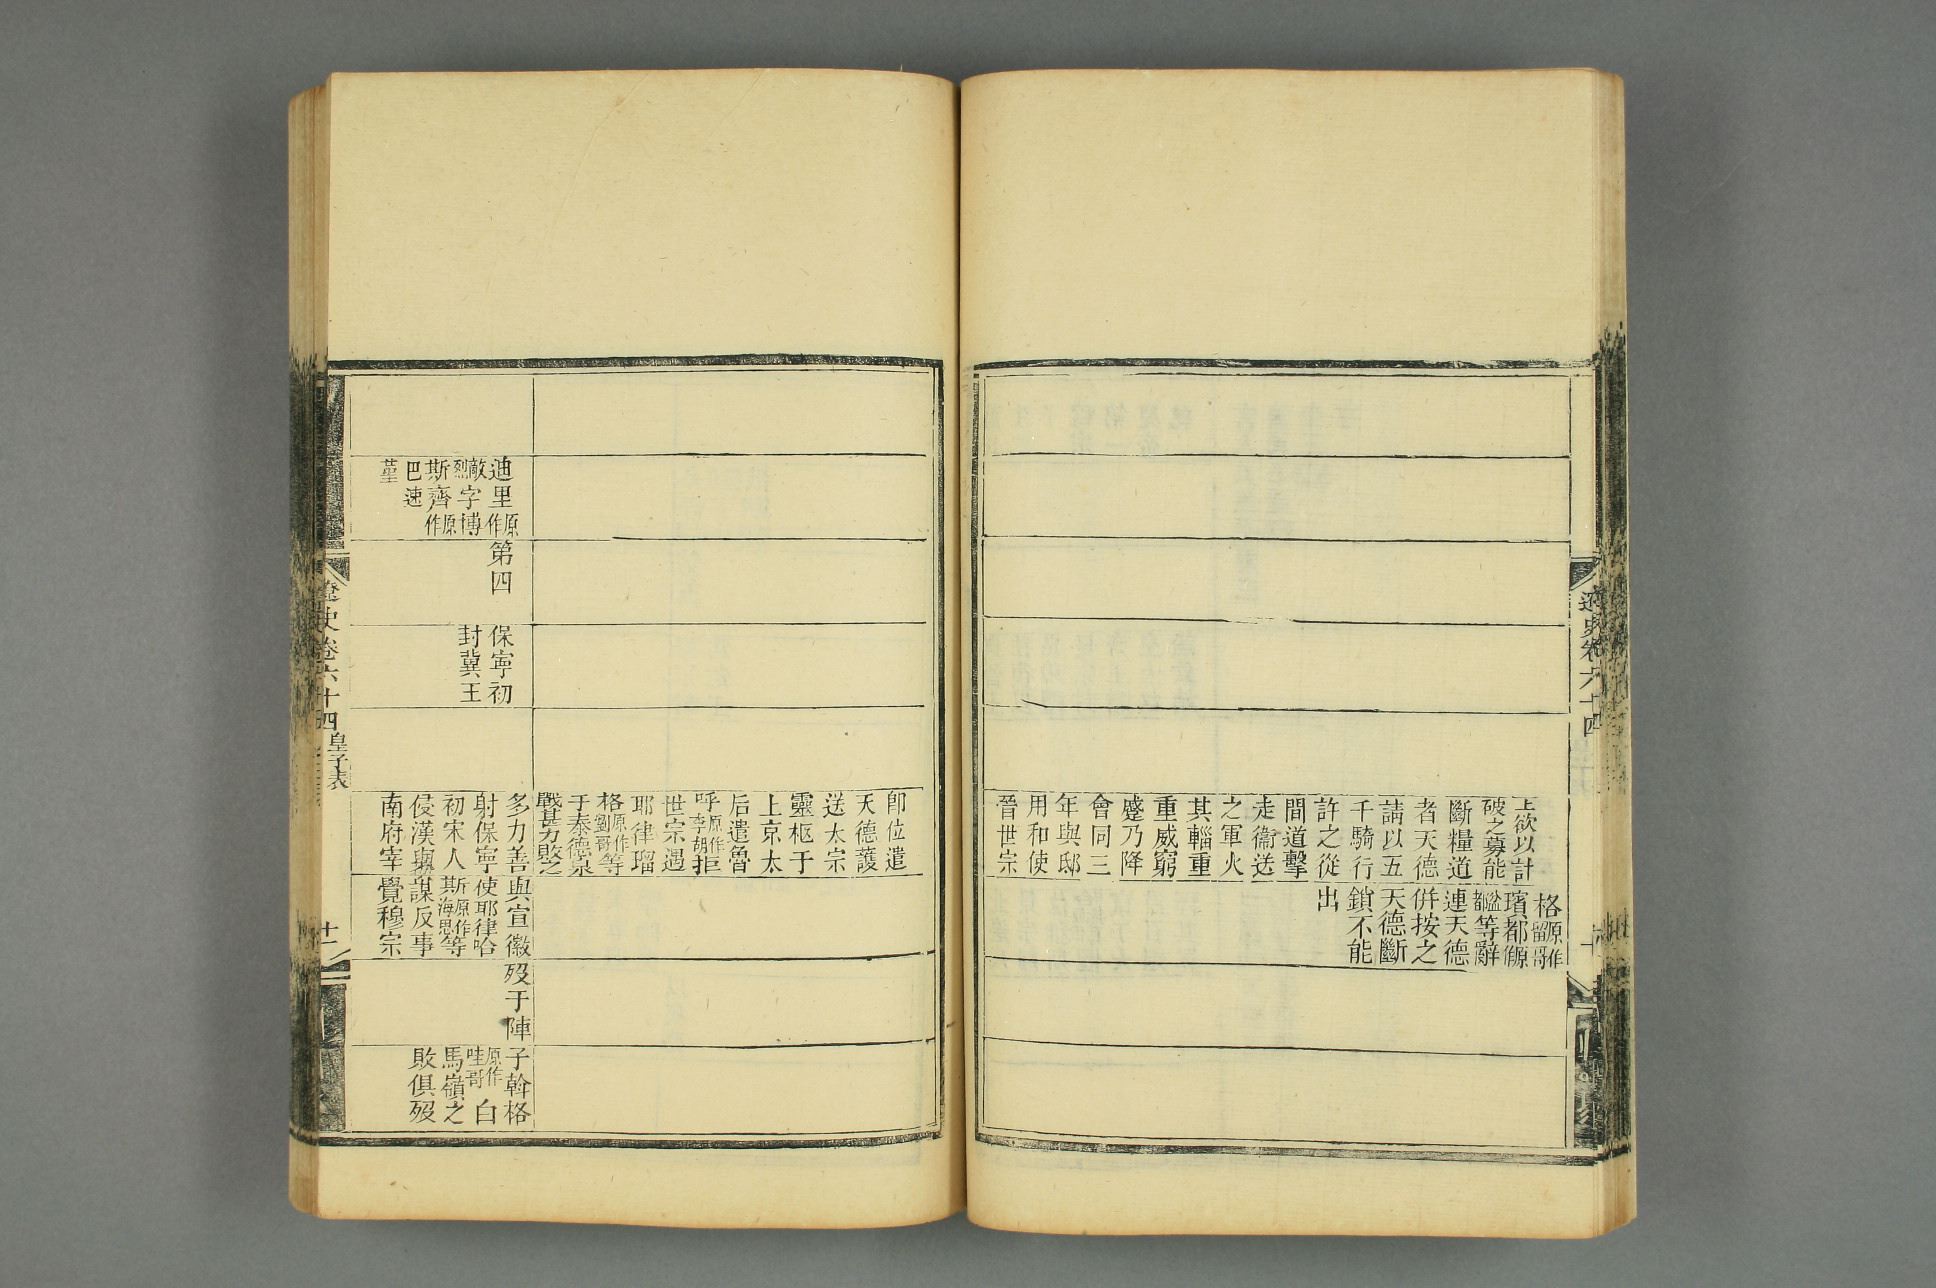 遼史卷六十四
上欲以計
破之募能
斷糧道
者天德
請以五
千騎行
許之從
間道擊
走衞送
之軍火
其輜重
重威窮
蹙乃降
會同三
年與邸
用和使
晉世宗
格原作留哥
璸都原作盆都等辭
連天德
併按之
天德斷
鎖不能
出
即位遣
天德護
送太宗
靈柩于
上京太
后遣魯
呼原作李胡拒
世宗遇
耶律瑠
格原作劉哥等
于泰德泉
戰甚力敗之
迪里原作
敵烈字博
斯齊原作
巴速
堇
第四
保寧初
封冀王
多力善
射保寧
初宋人
侵漢與
南府宰
與宣徽
使耶律哈
斯原作海思等
謀反事
覺穆宗
歿于陣
子斡格
原作哇哥白
馬嶺之
敗俱歿
遼史卷六十四 皇子表
十一